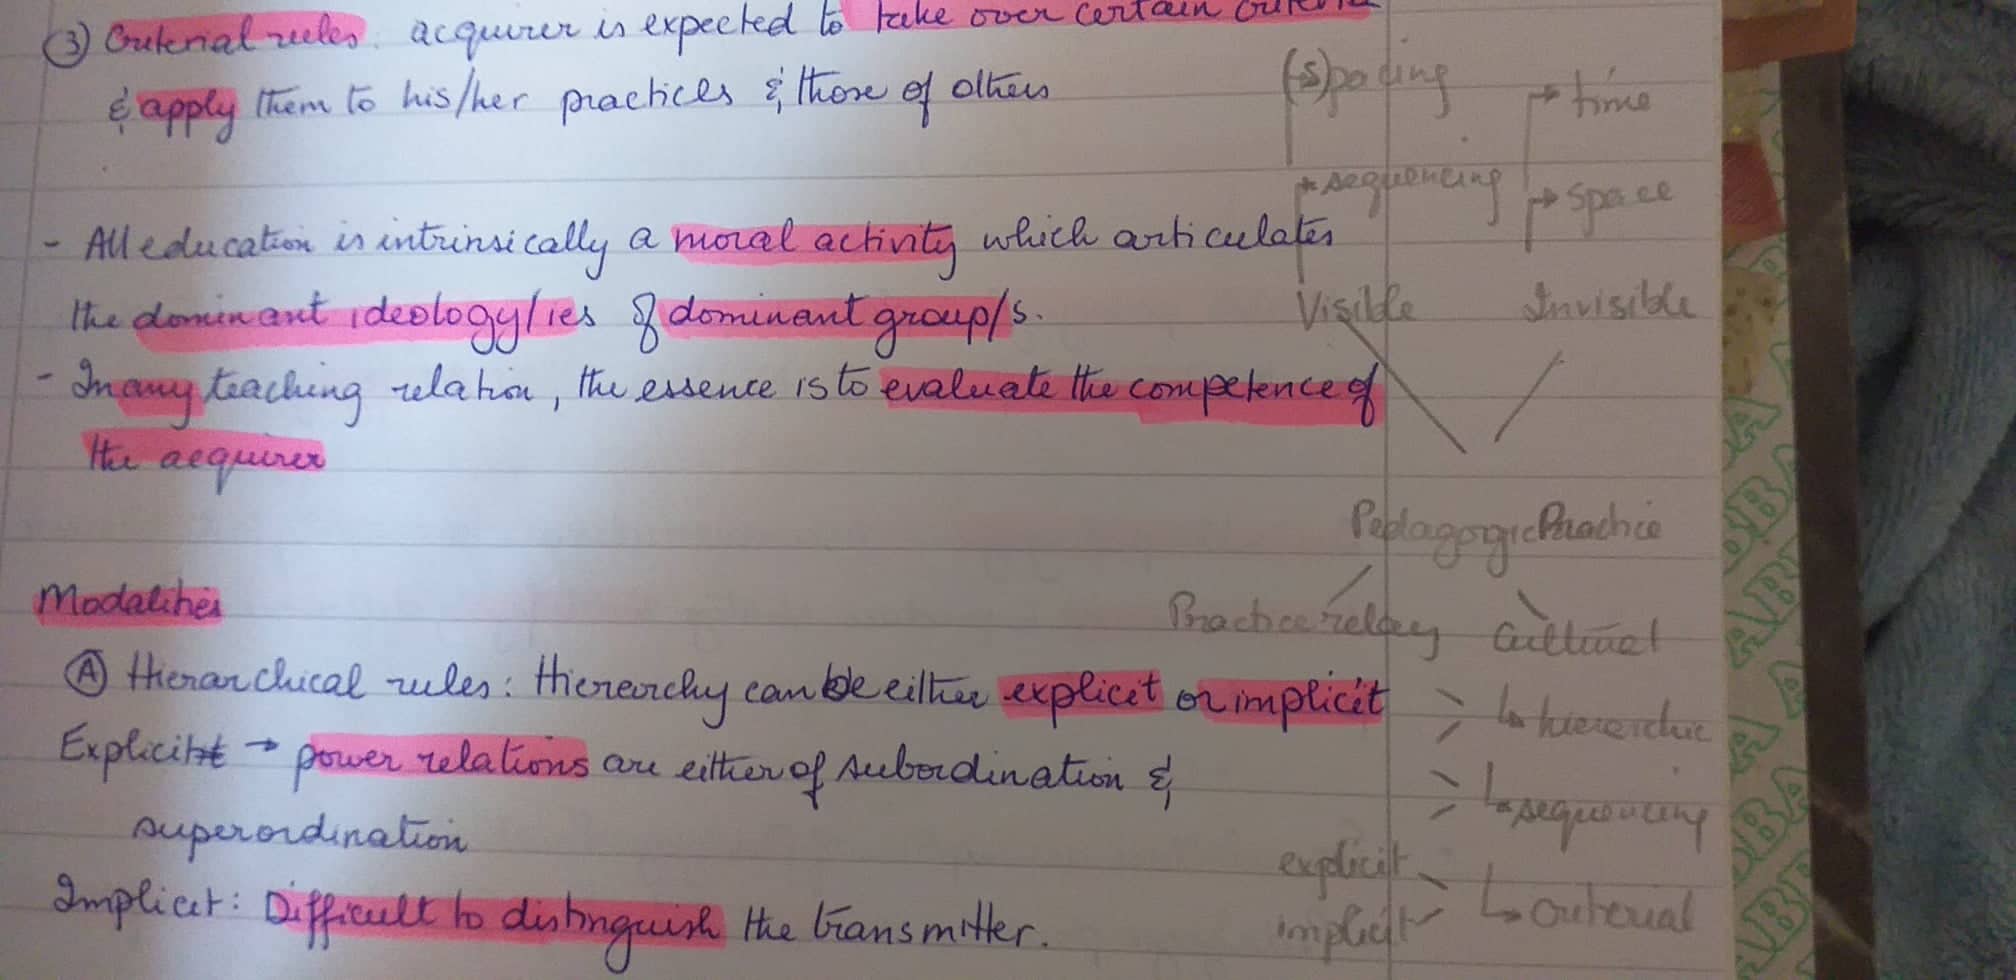 ③ Criterial rules: acquirer is expected to take over certain criteria
& apply them to his/her practices & those of others
- All education is intrinsically a moral activity which articulates
the dominant ideology/ies of dominant group/s.
- In any teaching relation, the essence is to evaluate the competence of
the acquirer
Modalities
Ⓐ Hierarchical rules: Hierarchy can be either explicit or implicit
Explicit → power relations are either of subordination &
superordination
Implicit: Difficult to distinguish the transmitter.
→ time
→ sequencing
→ space
Visible Invisible
Pedagogic Practice
Practice relay Cultural
↳ hierarchic
↳ sequencing
explicit
implicit
↳ criterial
ABBA